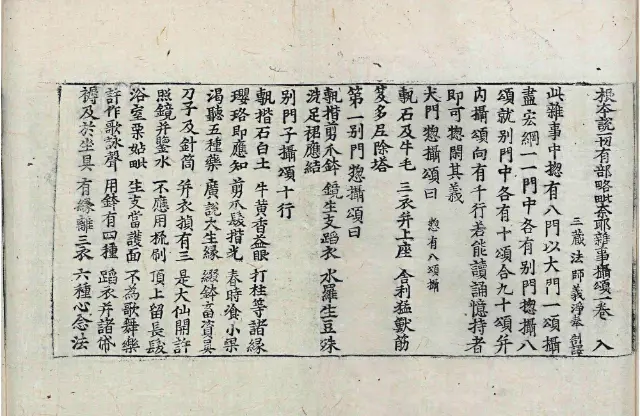 根本說一切有部略毗奈耶雜事攝頌一卷 入
三藏法師義淨奉 制譯
此雜事中惣有八門以大門一頌攝
盡宏綱一一門中各有別門惣攝八
頌就別門中各有十頌合九十頌并
內攝頌向有千行若能讀誦憶持者
即可惣閑其義
大門惣攝頌曰 惣有八頌攝
甎石及牛毛 三衣并上座 舍利猛獸筋
笈多尼除塔
第一別門惣攝頌曰
甎揩剪爪鉢 鏡生支蹈衣 水羅生豆珠
洗足裙應結
別門子攝頌十行
甎揩石白土 牛黃香益眼 打柱等諸緣
瓔珞即應知 剪爪髮揩光 春時食小果
渴聽五種藥 廣說大生緣 綴鉢畜資具
刀子及針筒 并衣楨有三 是大仙開許
照鏡并鑒水 不應用梳刷 頂上留長髮
浴室栗姑毗 生支當護面 不為歌舞樂
許作歌詠聲 用鉢有四種 蹈衣并諸帒
褥及於坐具 有緣離三衣 六種心念法